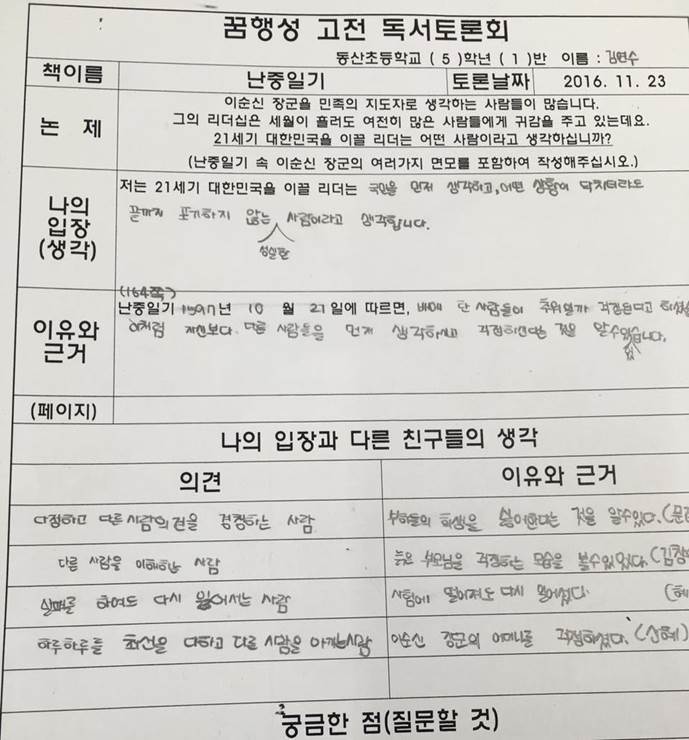 꿈행성 고전 독서토론회
동산초등학교 ( 5 )학년 ( 1 )반 이름 : 김현수
책이름 난중일기 토론날짜 2016. 11. 23
논 제
이순신 장군을 민족의 지도자로 생각하는 사람들이 많습니다.
그의 리더십은 세월이 흘러도 여전히 많은 사람들에게 귀감을 주고 있는데요.
21세기 대한민국을 이끌 리더는 어떤 사람이라고 생각하십니까?
(난중일기 속 이순신 장군의 여러가지 면모를 포함하여 작성해주십시오.)
나의
입장
(생각)
저는 21세기 대한민국을 이끌 리더는 국민을 먼저 생각하고, 어떤 상황이 닥치더라도
끝까지 포기하지 않는 사람이라고 생각합니다.
성실한
이유와
근거
(164쪽)
난중일기 1597년 10 월 21일에 따르면, 배에 탄 사람들이 추위할까 걱정된다고 하셨
이처럼 자신보다 다른 사람들을 먼저 생각하시고 걱정하신다는 것을 알수있습니다.
있
(페이지)
나의 입장과 다른 친구들의 생각
의견 이유와 근거
다정하고 다른사람의 말을 경청하는 사람 부하들의 희생을 싫어한다는 것을 알수있다.
다른 사람을 이해하는 사람 늙은 부모님을 걱정하는 모습을 볼수있었다. (김창
실패를 하여도 다시 일어서는 사람 시험에 떨어져도 다시 일어섰다. (혜
하루하루를 최선을 다하고 다른 사람을 아끼는사람 이순신 장군의 어머니를 걱정하셨다. (상혜)
궁금한 점(질문할 것)